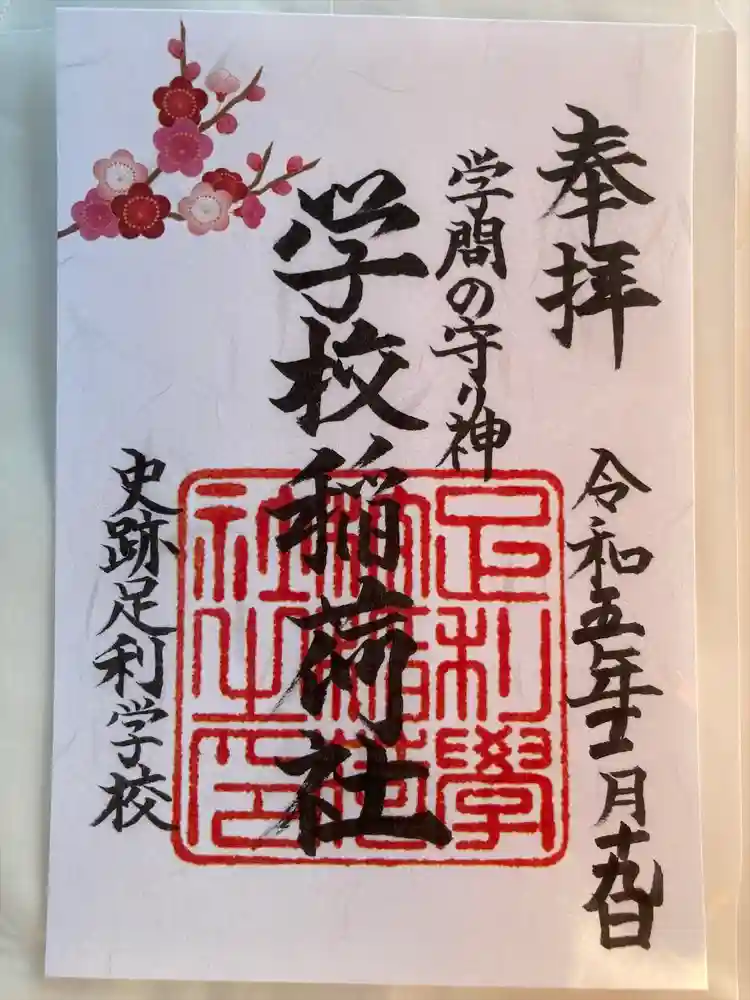 奉拝
令和五年十二月十九日
学問の守り神
学校稲荷社
史跡足利学校
足利學
社之印